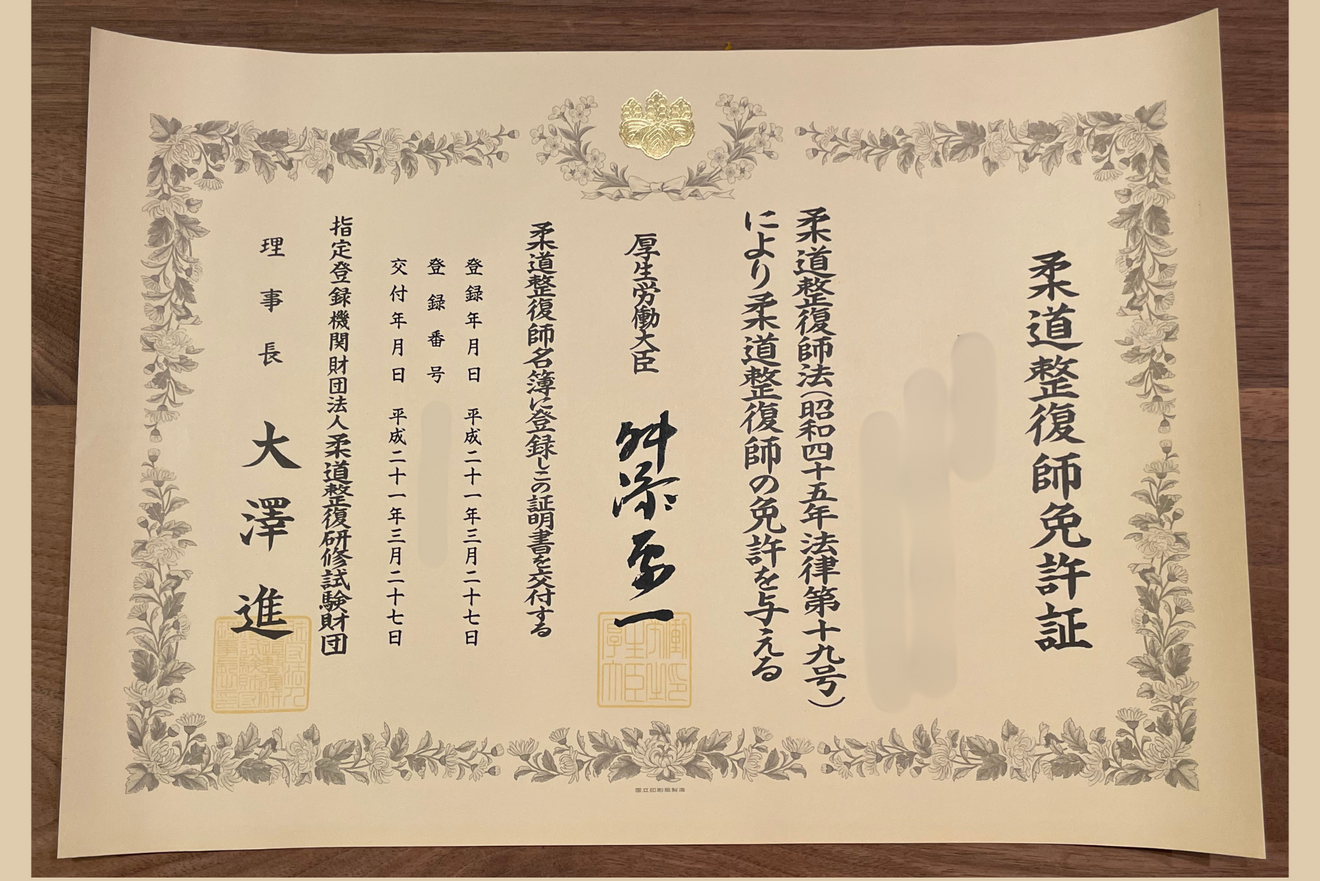 柔道整復師免許証
柔道整復師法(昭和四十五年法律第十九号)
により柔道整復師の免許を与える
厚生労働大臣 舛添要一
柔道整復師名簿に登録しこの証明書を交付する
登録年月日 平成二十一年三月二十七日
登録番号
交付年月日 平成二十一年三月二十七日
指定登録機関財団法人柔道整復研修試験財団
理事長 大澤進